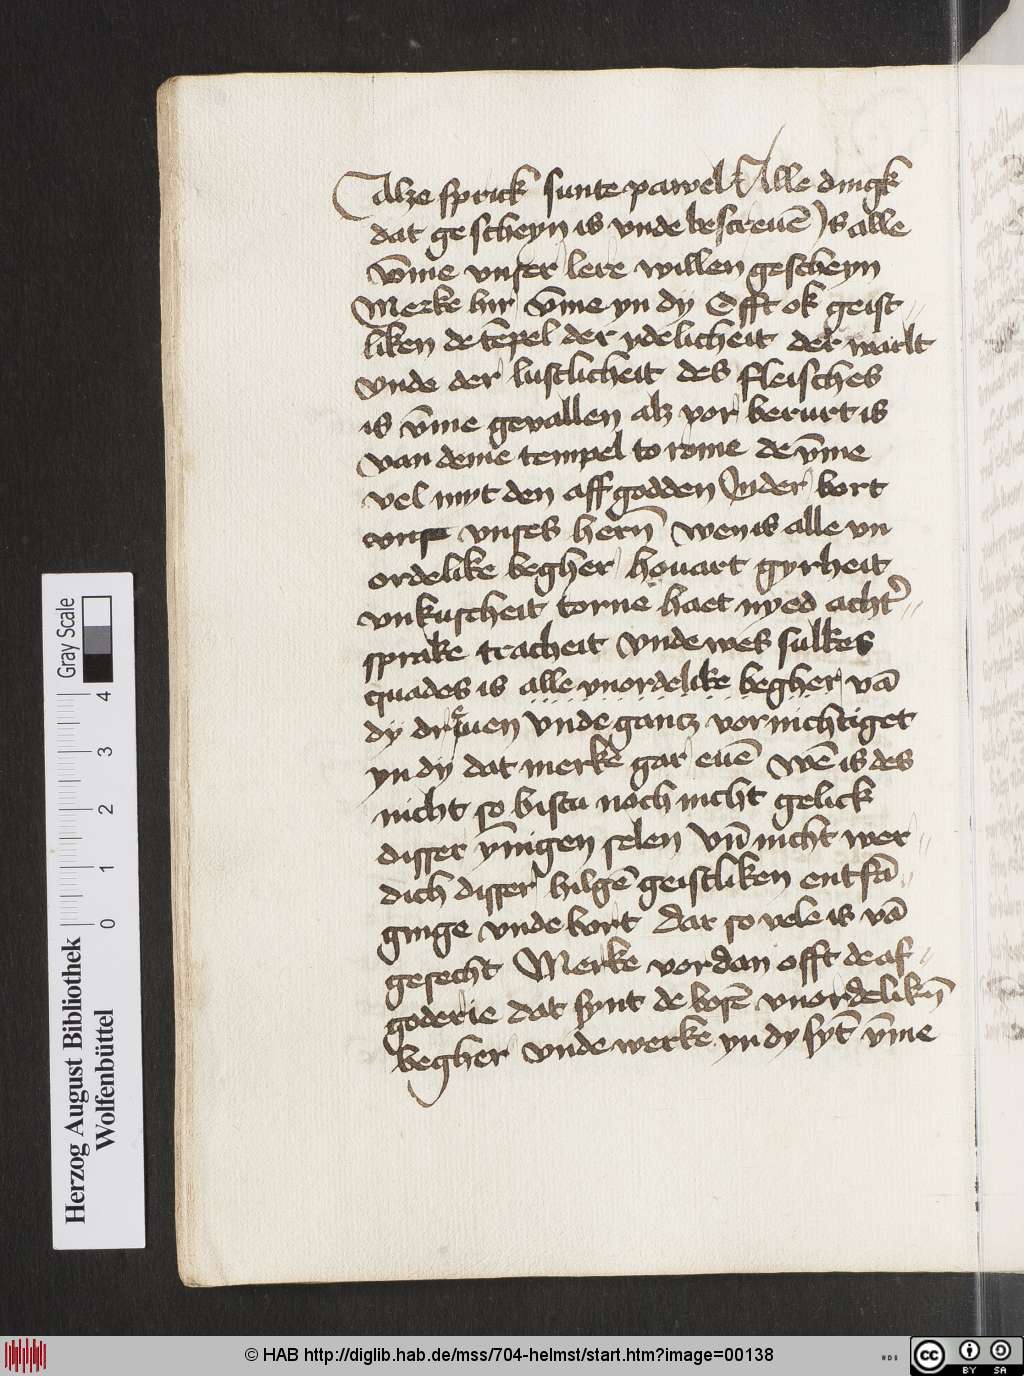 Alze sprick sunte pawel Alle dingk
dat ge scheyn is vnde bescreuē Is alle
vm̄e vnser lere willen gescheyn
Merke hir vm̄e yn dy Offt ok geist-
liken de tēpel der ydelicheit der warlt
vnde der lustlicheit des fleisches
is vm̄e gevallen alz vor berurt is
van deme tempel to rome de vm̄e
vel myt den aff godden In der bort
vnses hern̄ wen is alle vn
ordelike begher houart gyrheit
vnkuscheit torne haet nyed acht'-
sprake tracheit vnde wes sulkes
quades is alle vnordelike begher vā
dy dreuen vnde gantz vornichtiget
yn dy dat merke gar euē wē is des
nicht so bistu noch nicht gelick
disser ym̄igen selen vn̄ nicht wer-
dich disser hilgē geistliken entfā-
ginge vnde bort dar so vele is vā
gesecht Merke vordan offt de af-
goderie dat synt de bosē vnordelikn̄
begher vnde werke yn dy syt vm̄e
Herzog August Bibliothek
Wolfenbüttel
0 1 2 3 4
Gray Scale
© HAB http://diglib.hab.de/mss/704-helmst/start.htm?image=00138
cc BY SA